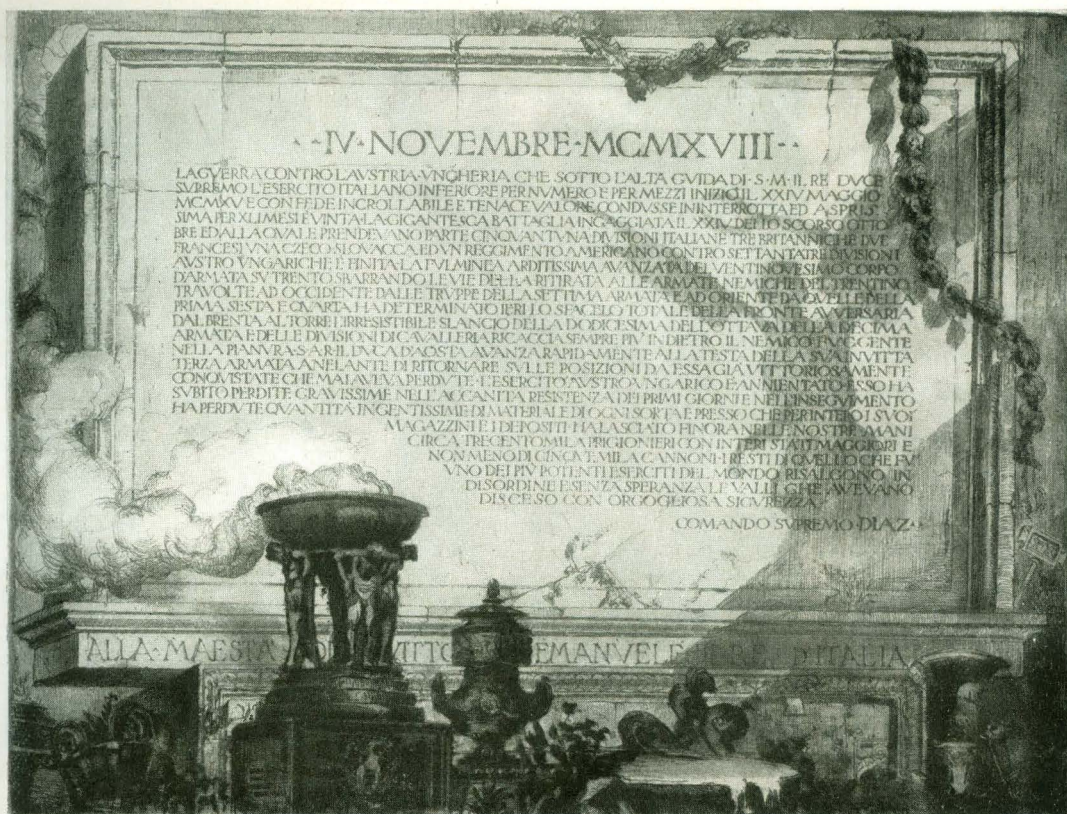 ··IV·NOVEMBRE·MCMXVIII··
LA GVERRA CONTRO L'AVSTRIA-VNGHERIA CHE SOTTO L'ALTA GUIDA DI·S·M·IL RE DVCE
SVPREMO L'ESERCITO ITALIANO INFERIORE PER NVMERO E PER MEZZI INIZIÒ IL XXIV MAGGIO
MCMXV E CON FEDE INCROLLABILE E TENACE VALORE CONDVSSE ININTERROTTA ED ASPRIS
SIMA PER XLI MESI È VINTA LA GIGANTESCA BATTAGLIA INGAGGIATA IL XXIV DELLO SCORSO OTTO
BRE ED ALLA QVALE PRENDEVANO PARTE CINQVANTVNA DIVISIONI ITALIANE TRE BRITANNICHE DVE
FRANCESI VNA CZECO SLOVACCA ED VN REGGIMENTO AMERICANO CONTRO SETTANTATRE DIVISIONI
AVSTRO VNGARICHE È FINITA LA FVLMINEA ARDITISSIMA AVANZATA DEL VENTINOVESIMO CORPO
D'ARMATA SV TRENTO SBARRANDO LE VIE DELLA RITIRATA ALLE ARMATE NEMICHE DEL TRENTINO
TRAVOLTE AD OCCIDENTE DALLE TRVPPE DELLA SETTIMA ARMATA E AD ORIENTE DA QVELLE DELLA
PRIMA SESTA E QVARTA HA DETERMINATO IERI LO SFACELO TOTALE DELLA FRONTE AVVERSARIA
DAL BRENTA AL TORRE L'IRRESISTIBILE SLANCIO DELLA DODICESIMA DELL'OTTAVA DELLA DECIMA
ARMATA E DELLE DIVISIONI DI CAVALLERIA RICACCIA SEMPRE PIV INDIETRO IL NEMICO FVGGENTE
NELLA PIANVRA·S·A·R·IL DVCA D'AOSTA AVANZA RAPIDAMENTE ALLA TESTA DELLA SVA INVITTA
TERZA ARMATA ANELANTE DI RITORNARE SVLLE POSIZIONI DA ESSA GIÀ VITTORIOSAMENTE
CONQVISTATE CHE MAI AVEVA PERDVTE·L'ESERCITO AVSTRO VNGARICO È ANNIENTATO·ESSO HA
SVBITO PERDITE GRAVISSIME NELL'ACCANITA RESISTENZA DEI PRIMI GIORNI E NELL'INSEGVIMENTO
HA PERDVTE QVANTITÀ INGENTISSIME DI MATERIALE DI OGNI SORTA E PRESSO CHE PER INTERO I SVOI
MAGAZZINI E I DEPOSITI HA LASCIATO FINORA NELLE NOSTRE MANI
CIRCA TRECENTOMILA PRIGIONIERI CON INTERI STATI MAGGIORI E
NON MENO DI CINQVE MILA CANNONI·I RESTI DI QVELLO CHE FV
VNO DEI PIV POTENTI ESERCITI DEL MONDO RISALGONO IN
DISORDINE E SENZA SPERANZA LE VALLI CHE AVEVANO
DISCESO CON ORGOGLIOSA SICVREZZA
COMANDO SVPREMO DIAZ··
ALLA·MAESTÀ VITTO EMANVELE RE D'ITALIA